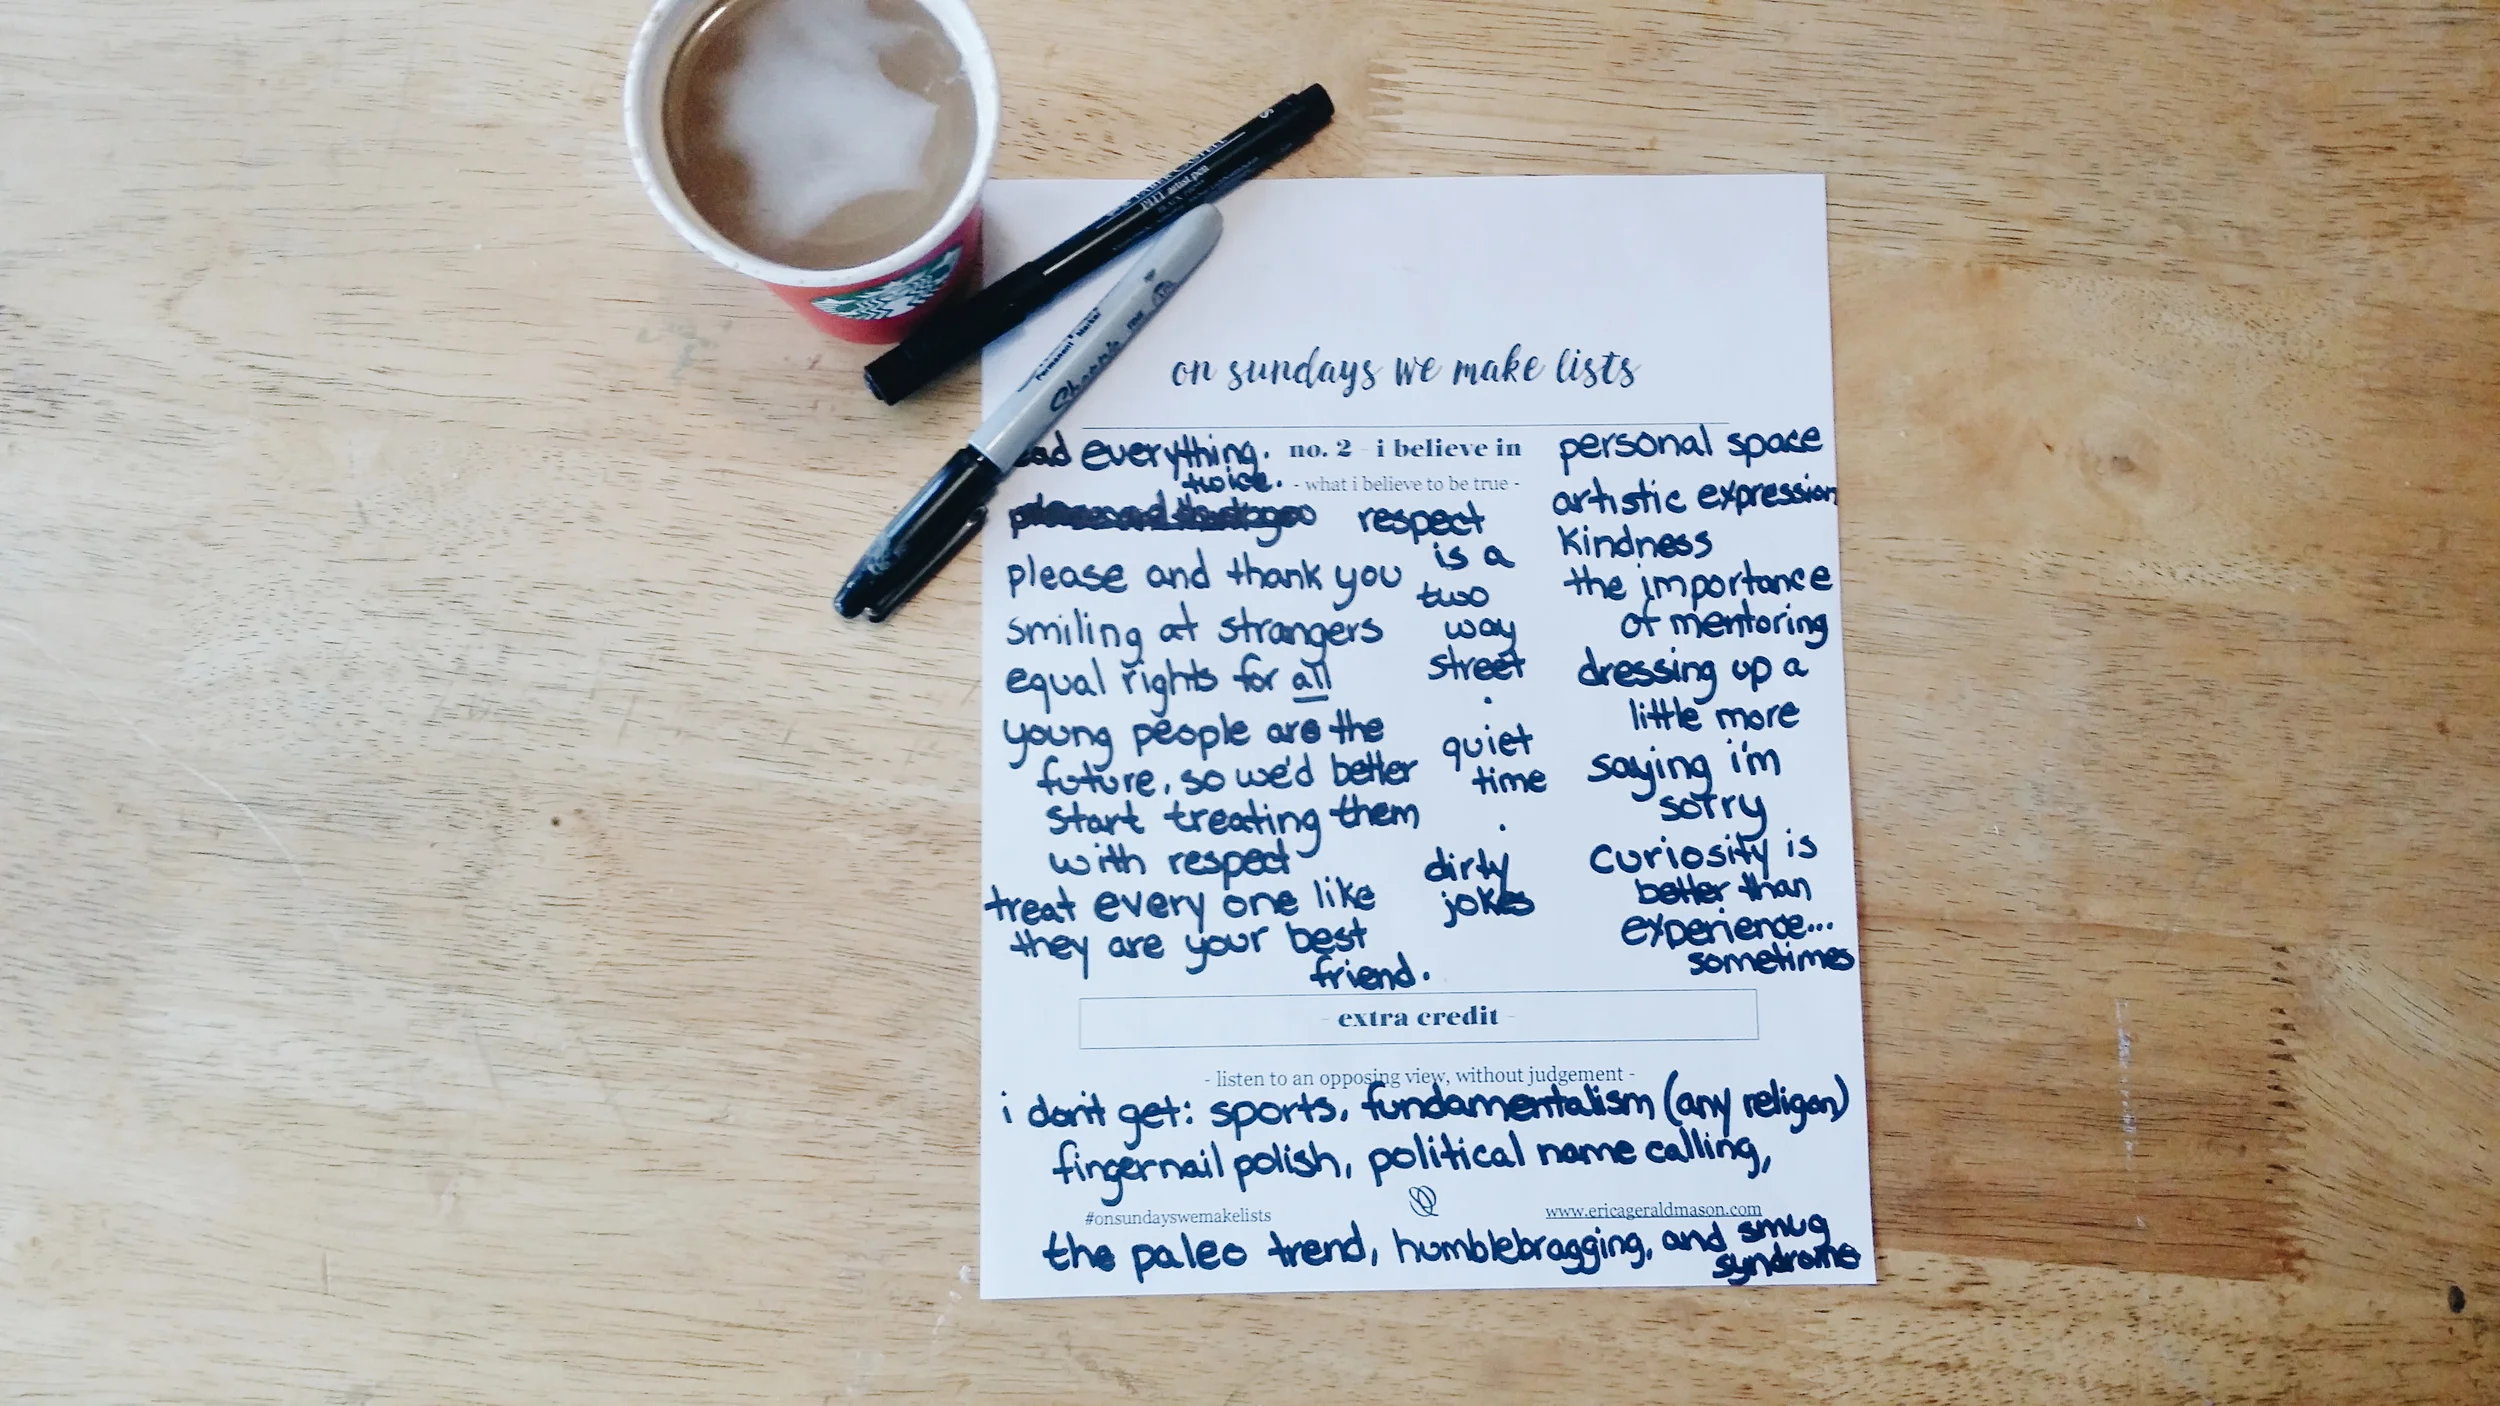 PITT artist pen
Permanent Marker
Sharpie
FINE
on sundays we make lists
no. 2 - i believe in
- what i believe to be true -
everything.
twice.
please and thank you
smiling at strangers
equal rights for all
young people are the
future, so we'd better
start treating them
with respect
treat every one like
they are your best
friend.
respect
is a
two
way
street
.
quiet
time
.
dirty
jokes
personal space
artistic expression
kindness
the importance
of mentoring
dressing up a
little more
saying i'm
sorry
curiosity is
better than
experience...
sometimes
- extra credit -
- listen to an opposing view, without judgement -
i don't get: sports, fundamentalism (any religon)
fingernail polish, political name calling,
#onsundayswemakelists
www.ericageraldmason.com
the paleo trend, humblebragging, and smug
syndrome